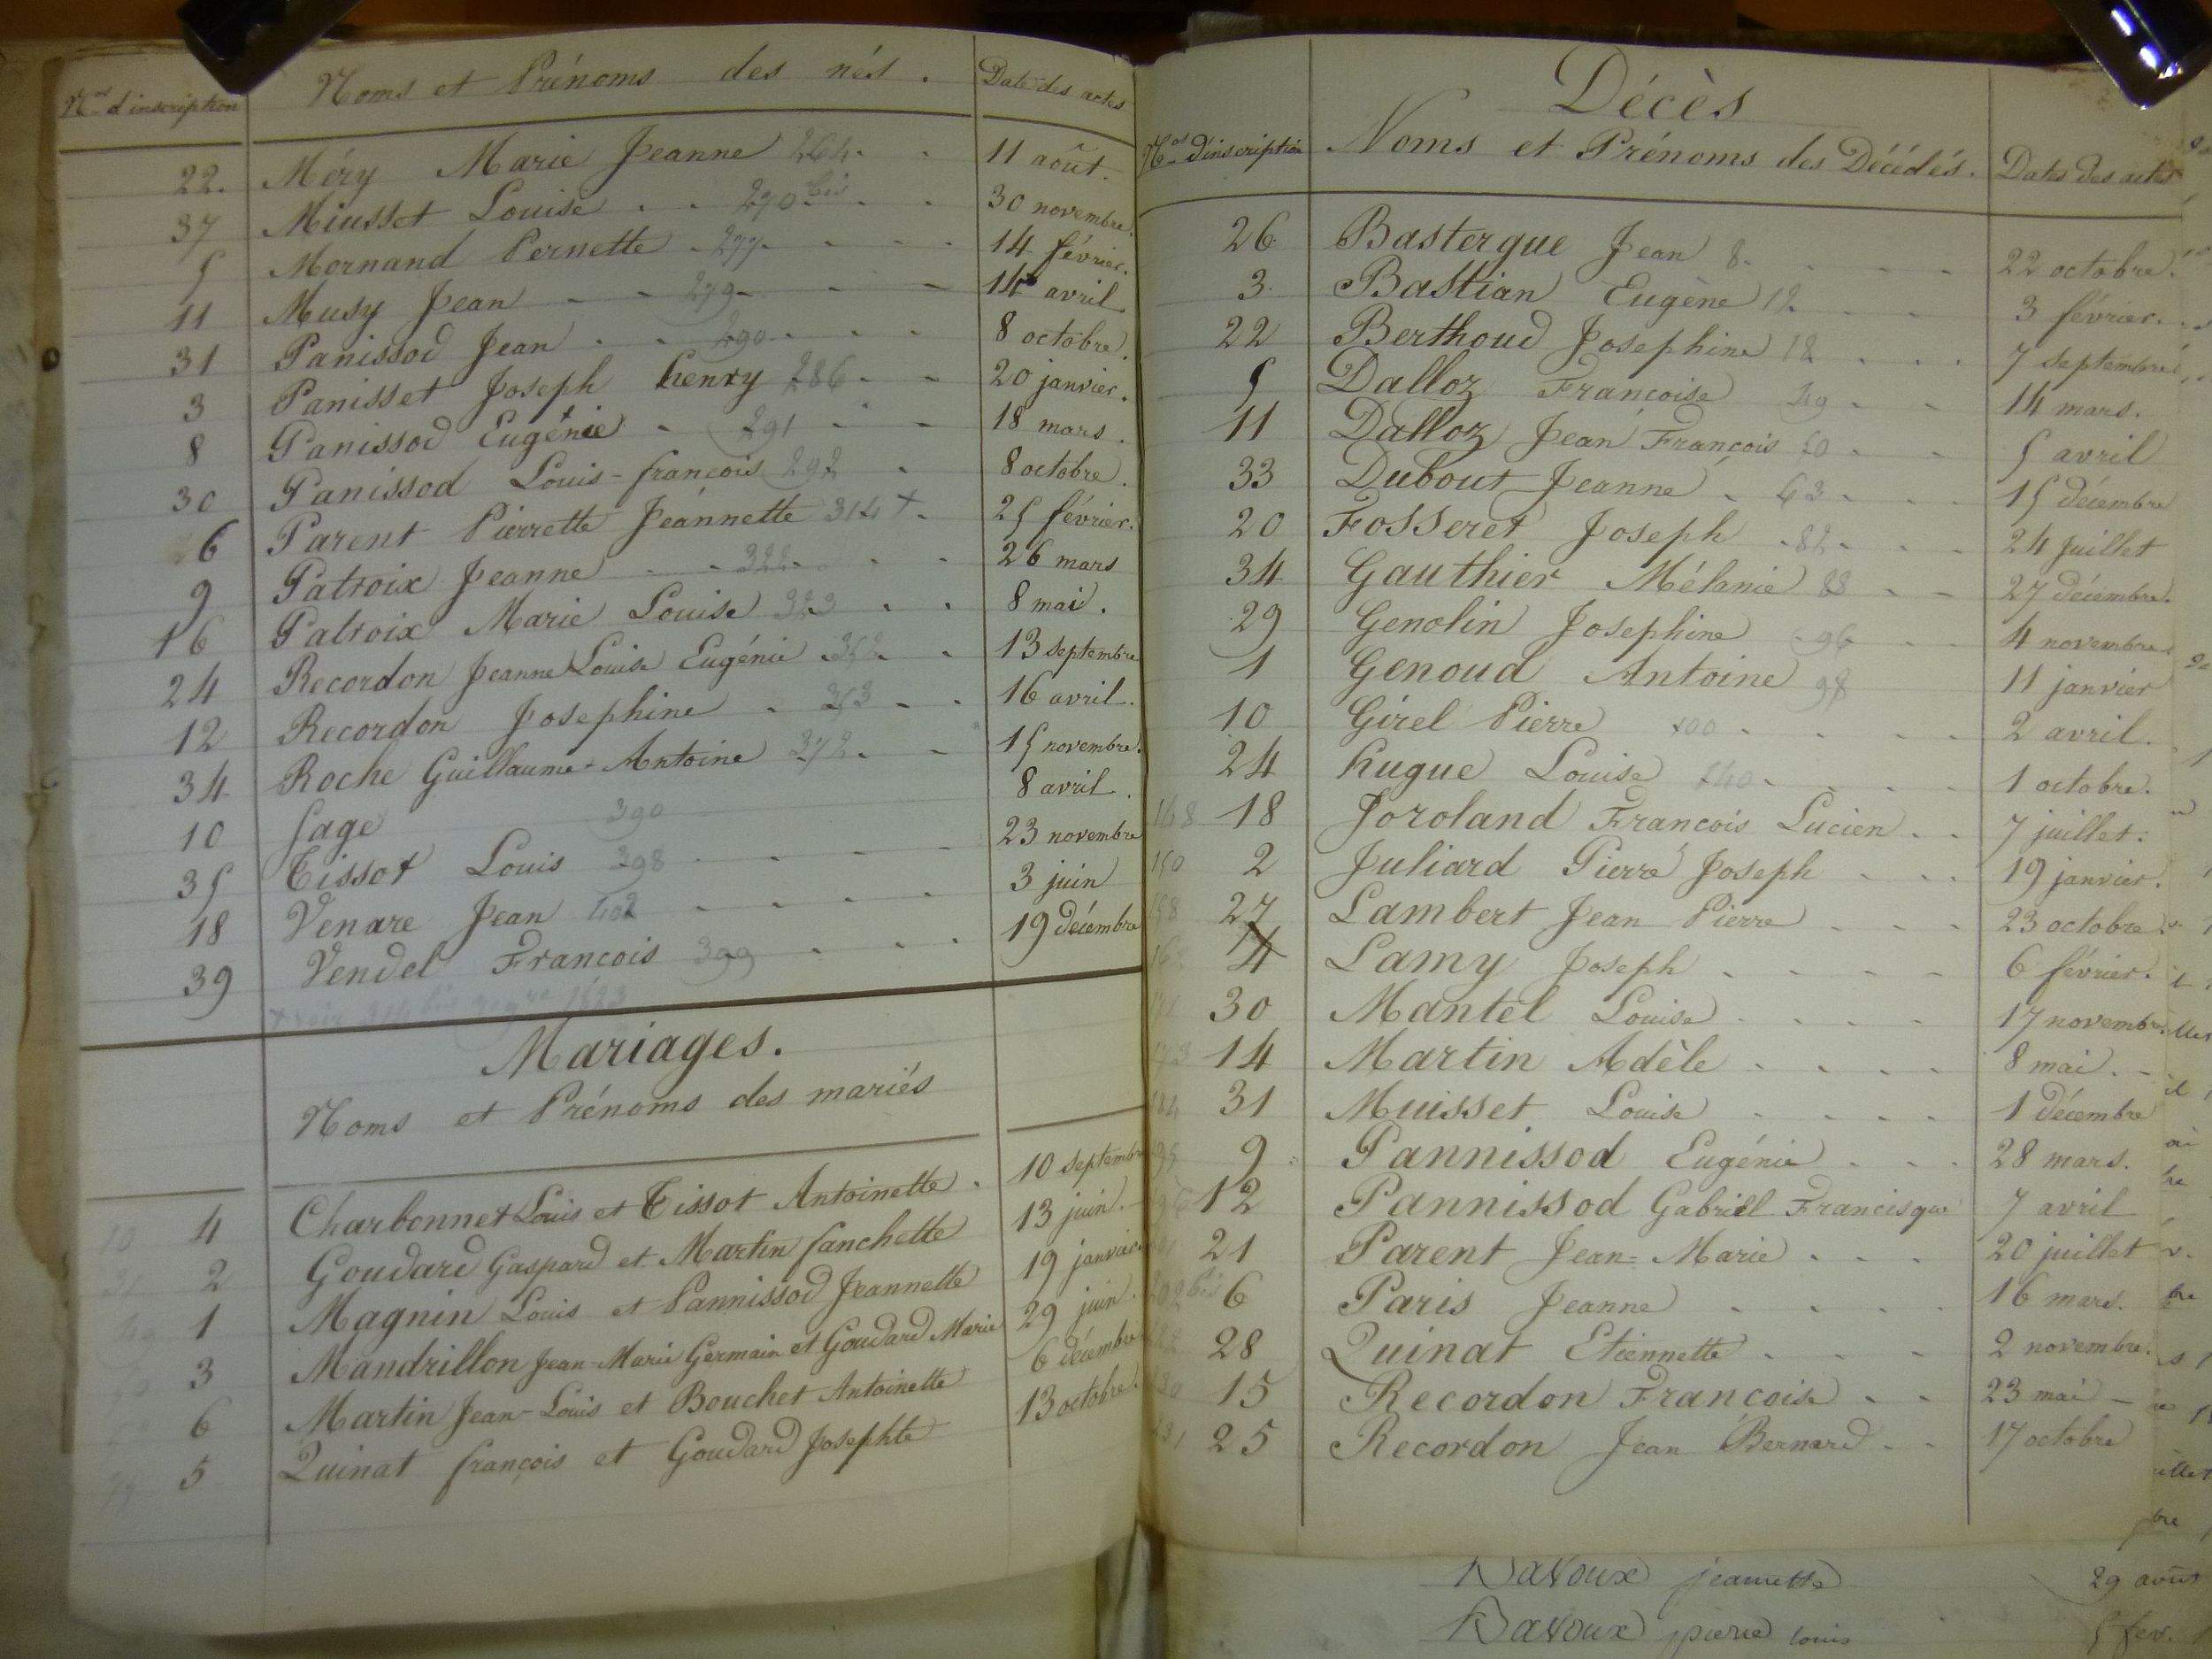 Nos d'inscription Noms et Prénoms des nés. Date des actes
22. Méry Marie Jeanne 264 11 août.
37 Miusset Louise 270 bis 30 novembre.
5 Mornand Pernette 277 14 février.
11 Musy Jean 279 14 avril
31 Panissod Jean 290 8 octobre.
3 Panisset Joseph henry 286 20 janvier.
8 Panissod Eugénie 291 18 mars.
30 Panissod Louis-françois 292 8 octobre.
6 Parent Pierrette Jeannette 314 + 25 février.
9 Patroix Jeanne 322 26 mars
16 Patroix Marie Louise 323 8 mai.
24 Recordon Jeanne Louise Eugénie 352 13 septembre
12 Recordon Josephine 353 16 avril.
34 Roche Guillaume-Antoine 372 15 novembre.
10 Sage 390 8 avril.
35 Tissot Louis 398 23 novembre
18 Venare Jean 402 3 juin
39 Vendel François 399 19 décembre
Mariages.
Noms et Prénoms des mariés
4 Charbonnet Louis et Tissot Antoinette. 10 septembre
2 Goudard Gaspard et Martin fanchette 13 juin.
1 Magnin Louis et Pannissod Jeannette 19 janvier.
3 Mandrillon Jean-Marie Germain et Goudard Marie 29 juin.
6 Martin Jean-Louis et Bouchet Antoinette 6 décembre
5 Quinat françois et Goudard Josephte 13 octobre.
Décès
Nos d'inscription Noms et Prénoms des Décédés. Dates des actes
26 Bastergue Jean 8 22 octobre.
3 Bastian Eugène 12 3 février.
22 Berthoud Josephine 18 7 septembre
5 Dalloz Françoise 49 14 mars.
11 Dalloz Jean François 50 5 avril
33 Dubout Jeanne 63 15 décembre
20 Fosseret Joseph 82 24 juillet
34 Gauthier Mélanie 88 27 décembre.
29 Genolin Josephine 96 4 novembre
1 Genoud Antoine 98 11 janvier
10 Girel Pierre 100 2 avril.
24 hugue Louise 140 1 octobre.
148 18 Joroland François Lucien 7 juillet.
150 2 Juliard Pierre Joseph 19 janvier.
158 27 Lambert Jean Pierre 23 octobre
4 Lamy Joseph 6 février.
30 Mantel Louise 17 novembre
173 14 Martin Adèle 8 mai.
31 Muisset Louise 1 décembre
9 Pannissod Eugénie 28 mars.
12 Pannissod Gabriel Francisque 7 avril
21 Parent Jean-Marie 20 juillet
202 bis 6 Paris Jeanne 16 mars.
28 Quinat Etiennette 2 novembre.
15 Recordon Françoise 23 mai
231 25 Recordon Jean Bernard 17 octobre
Davoux jeannette 29 août
Davoux pierre louis 5 fev.